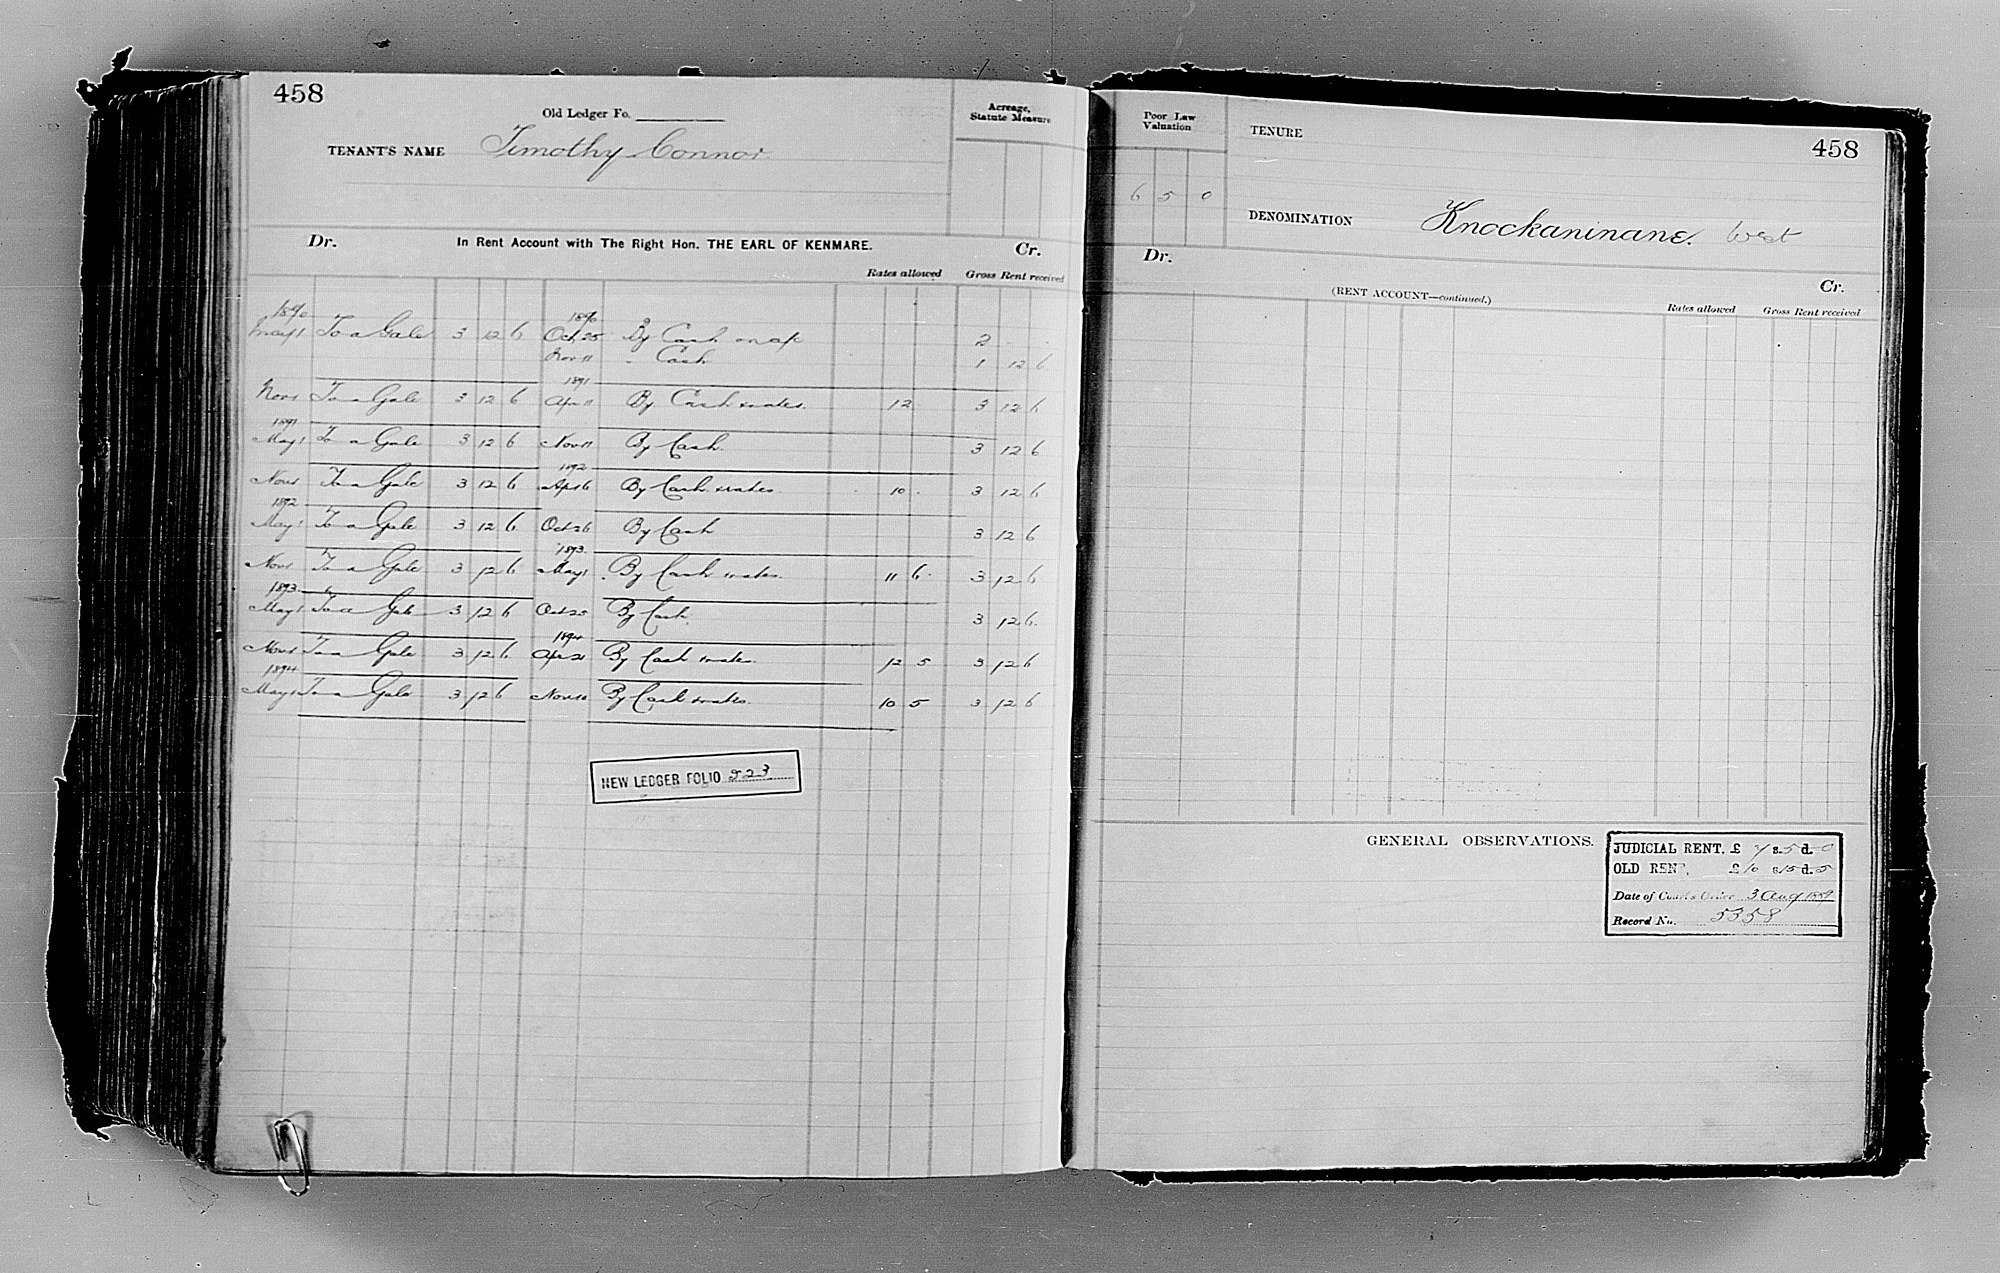 458
Old Ledger Fo.
TENANT'S NAME Timothy Connor
Acreage,
Statute Measure
In Rent Account with The Right Hon. THE EARL OF KENMARE.
Dr. Cr.
Rates allowed Gross Rent received
1890 1890
May 1 To a Gale 3 12 6 Oct 25 By Cash on a/c 2
Nov 11 - Cash 1 12 6
1891
Nov 1 To a Gale 3 12 6 Apr 11 By Cash & rates. 12 3 12 6
1891
May 1 To a Gale 3 12 6 Nov 11 By Cash. 3 12 6
1892
Nov 1 To a Gale 3 12 6 Apr 6 By Cash & rates. 10 3 12 6
1892
May 1 To a Gale 3 12 6 Oct 26 By Cash 3 12 6
1893
Nov 1 To a Gale 3 12 6 May 1 By Cash & rates. 11 6 3 12 6
1893
May 1 To a Gale 3 12 6 Oct 25 By Cash. 3 12 6
1894
Nov 1 To a Gale 3 12 6 Apr 21 By Cash & rates. 12 5 3 12 6
1894
May 1 To a Gale 3 12 6 Nov 10 By Cash & rates. 10 5 3 12 6
NEW LEDGER FOLIO 223
Poor Law
Valuation
6 5 0
TENURE
458
DENOMINATION Knockaninane. West
Dr.
(RENT ACCOUNT—continued.)
Cr.
Rates allowed Gross Rent received
GENERAL OBSERVATIONS.
JUDICIAL RENT. £ 7 s. 5 d. 0
OLD RENT, £ 10 s. 15 d. 5
Date of Court's Order 3 Aug 1889
Record No. 5358